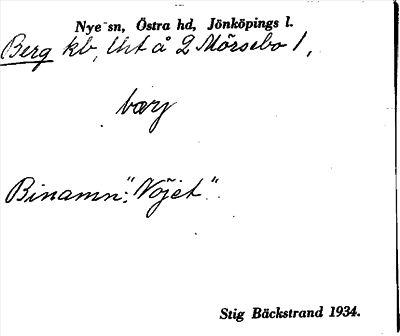 Nye sn, Östra hd, Jönköpings l.
Berg kb, Uht å 2 Mörsebo 1,
bærj
Binamn: "Nöjet".
Stig Bäckstrand 1934.